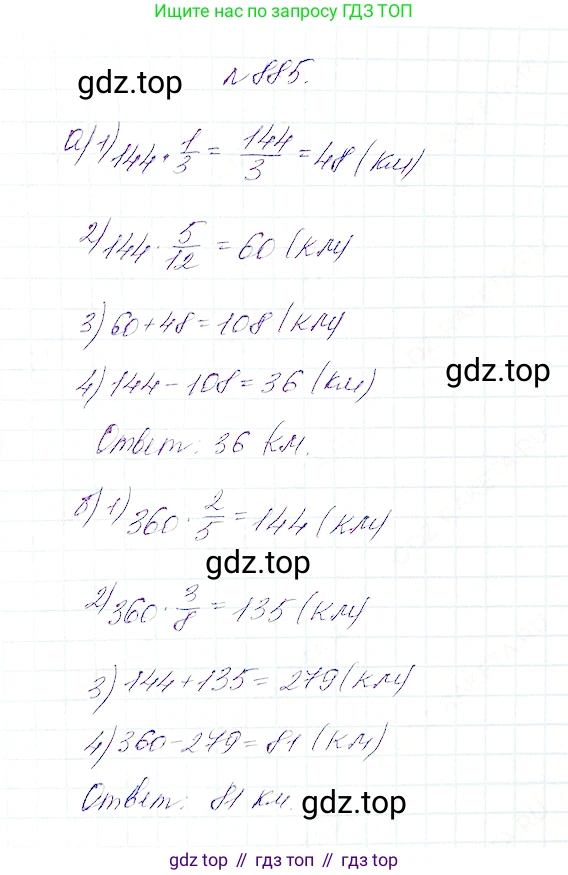 Ищите нас по запросу ГДЗ ТОП
gdz.top
№885.
а) 1) 144 · 1/3 = 144/3 = 48 (км)
2) 144 · 5/12 = 60 (км)
3) 60 + 48 = 108 (км)
4) 144 - 108 = 36 (км)
gdz.top
Ответ: 36 км.
б) 1) 360 · 2/5 = 144 (км)
gdz.top
2) 360 · 3/8 = 135 (км)
3) 144 + 135 = 279 (км)
4) 360 - 279 = 81 (км)
Ответ: 81 км.
gdz.top
gdz top // гдз топ // гдз top